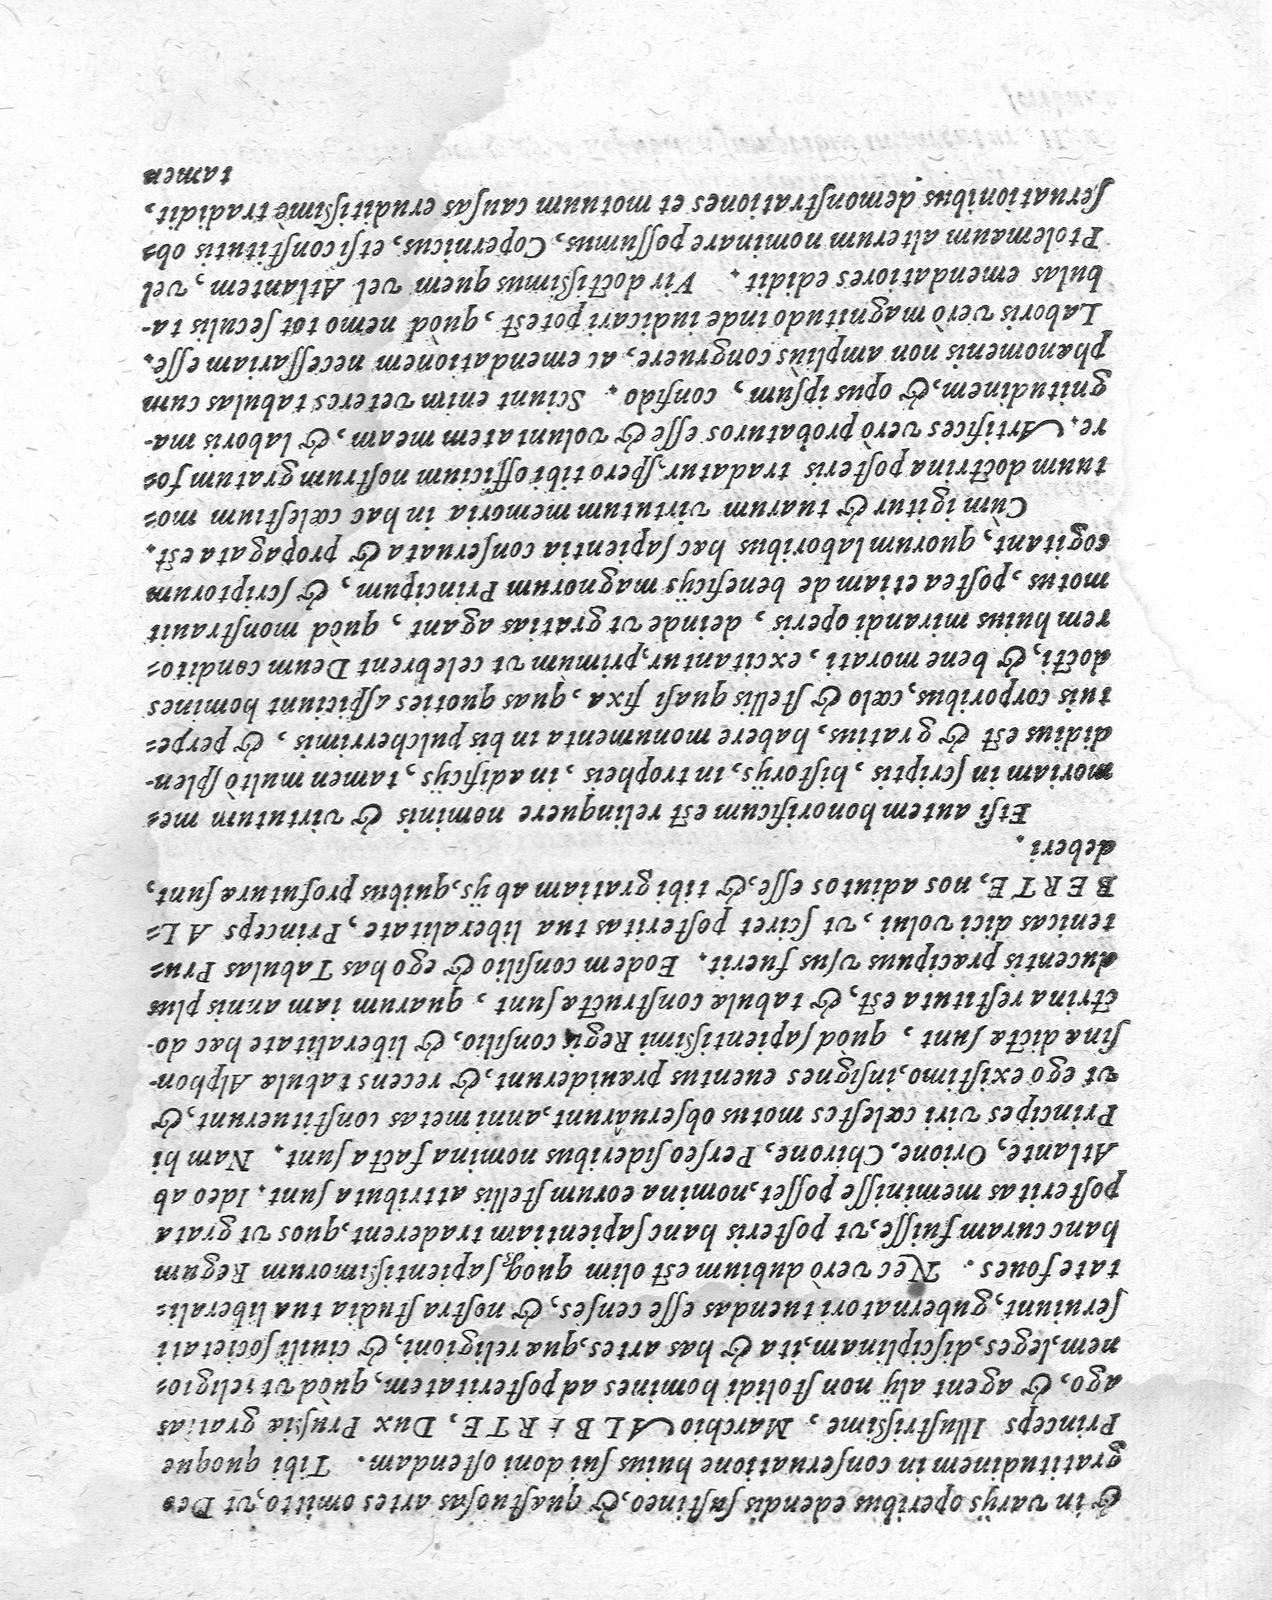 & in varijs operibus edendis sustineo, & quæstuosas artes omitto, vt Deo
gratitudinem in conseruatione huius sui doni ostendam. Tibi quoque
Princeps Illustrissime, Marchio ALBERTE, Dux Prussiæ gratias
ago, & agent alij non stolidi homines ad posteritatem, quòd vt religio=
nem, leges, disciplinam, ita & has artes, quæ religioni, & ciuili societati
seruiunt, gubernatori tuendas esse censes, & nostra studia tua liberali=
tate foues. Nec verò dubium est olim quoq; sapientissimorum Regum
hanc curam fuisse, vt posteris hanc sapientiam traderent, quos vt grata
posteritas meminisse posset, nomina eorum stellis attributa sunt. Ideo ab
Atlante, Orione, Chirone, Perseo sideribus nomina facta sunt. Nam hi
Principes viri cælestes motus obseruârunt, anni metas constituerunt, &
vt ego existimo, insignes euentus præuiderunt, & recens tabulæ Alphon-
sinæ dictæ sunt, quòd sapientissimi Regis consilio, & liberalitate hæc do-
ctrina restituta est, & tabulæ constructæ sunt, quarum iam annis plus
ducentis præcipuus vsus fuerit. Eodem consilio & ego has Tabulas Pru=
tenicas dici volui, vt sciret posteritas tua liberalitate, Princeps AL=
BERTE, nos adiutos esse, & tibi gratiam ab ijs, quibus profuturæ sunt,
deberi.
Etsi autem honorificum est relinquere nominis & virtutum me=
moriam in scriptis, historijs, in tropheis, in ædificijs, tamen multò splen-
didius est & gratius, habere monumenta in his pulcherrimis, & perpe=
tuis corporibus, cælo & stellis quasi fixa, quas quoties aspiciunt homines
docti, & bene morati, excitantur, primùm vt celebrent Deum condito=
rem huius mirandi operis, deinde vt gratias agant, quòd monstrauit
motus, postea etiam de beneficijs magnorum Principum, & scriptorum
cogitant, quorum laboribus hæc sapientia conseruata & propagata est.
Cùm igitur & tuarum virtutum memoria in hac cœlestium mo=
tuum doctrina posteris tradatur, spero tibi officium nostrum gratum fo=
re. Artifices verò probaturos esse & voluntatem meam, & laboris ma-
gnitudinem, & opus ipsum, confido. Sciunt enim veteres tabulas cum
phænomenis non ampliùs congruere, ac emendationem necessariam esse.
Laboris verò magnitudo inde iudicari potest, quòd nemo tot seculis ta-
bulas emendatiores edidit. Vir doctissimus quem vel Atlantem, vel
Ptolemæum alterum nominare possumus, Copernicus, etsi constitutis ob=
seruationibus demonstrationes et motuum causas eruditissimè tradidit,
tamen